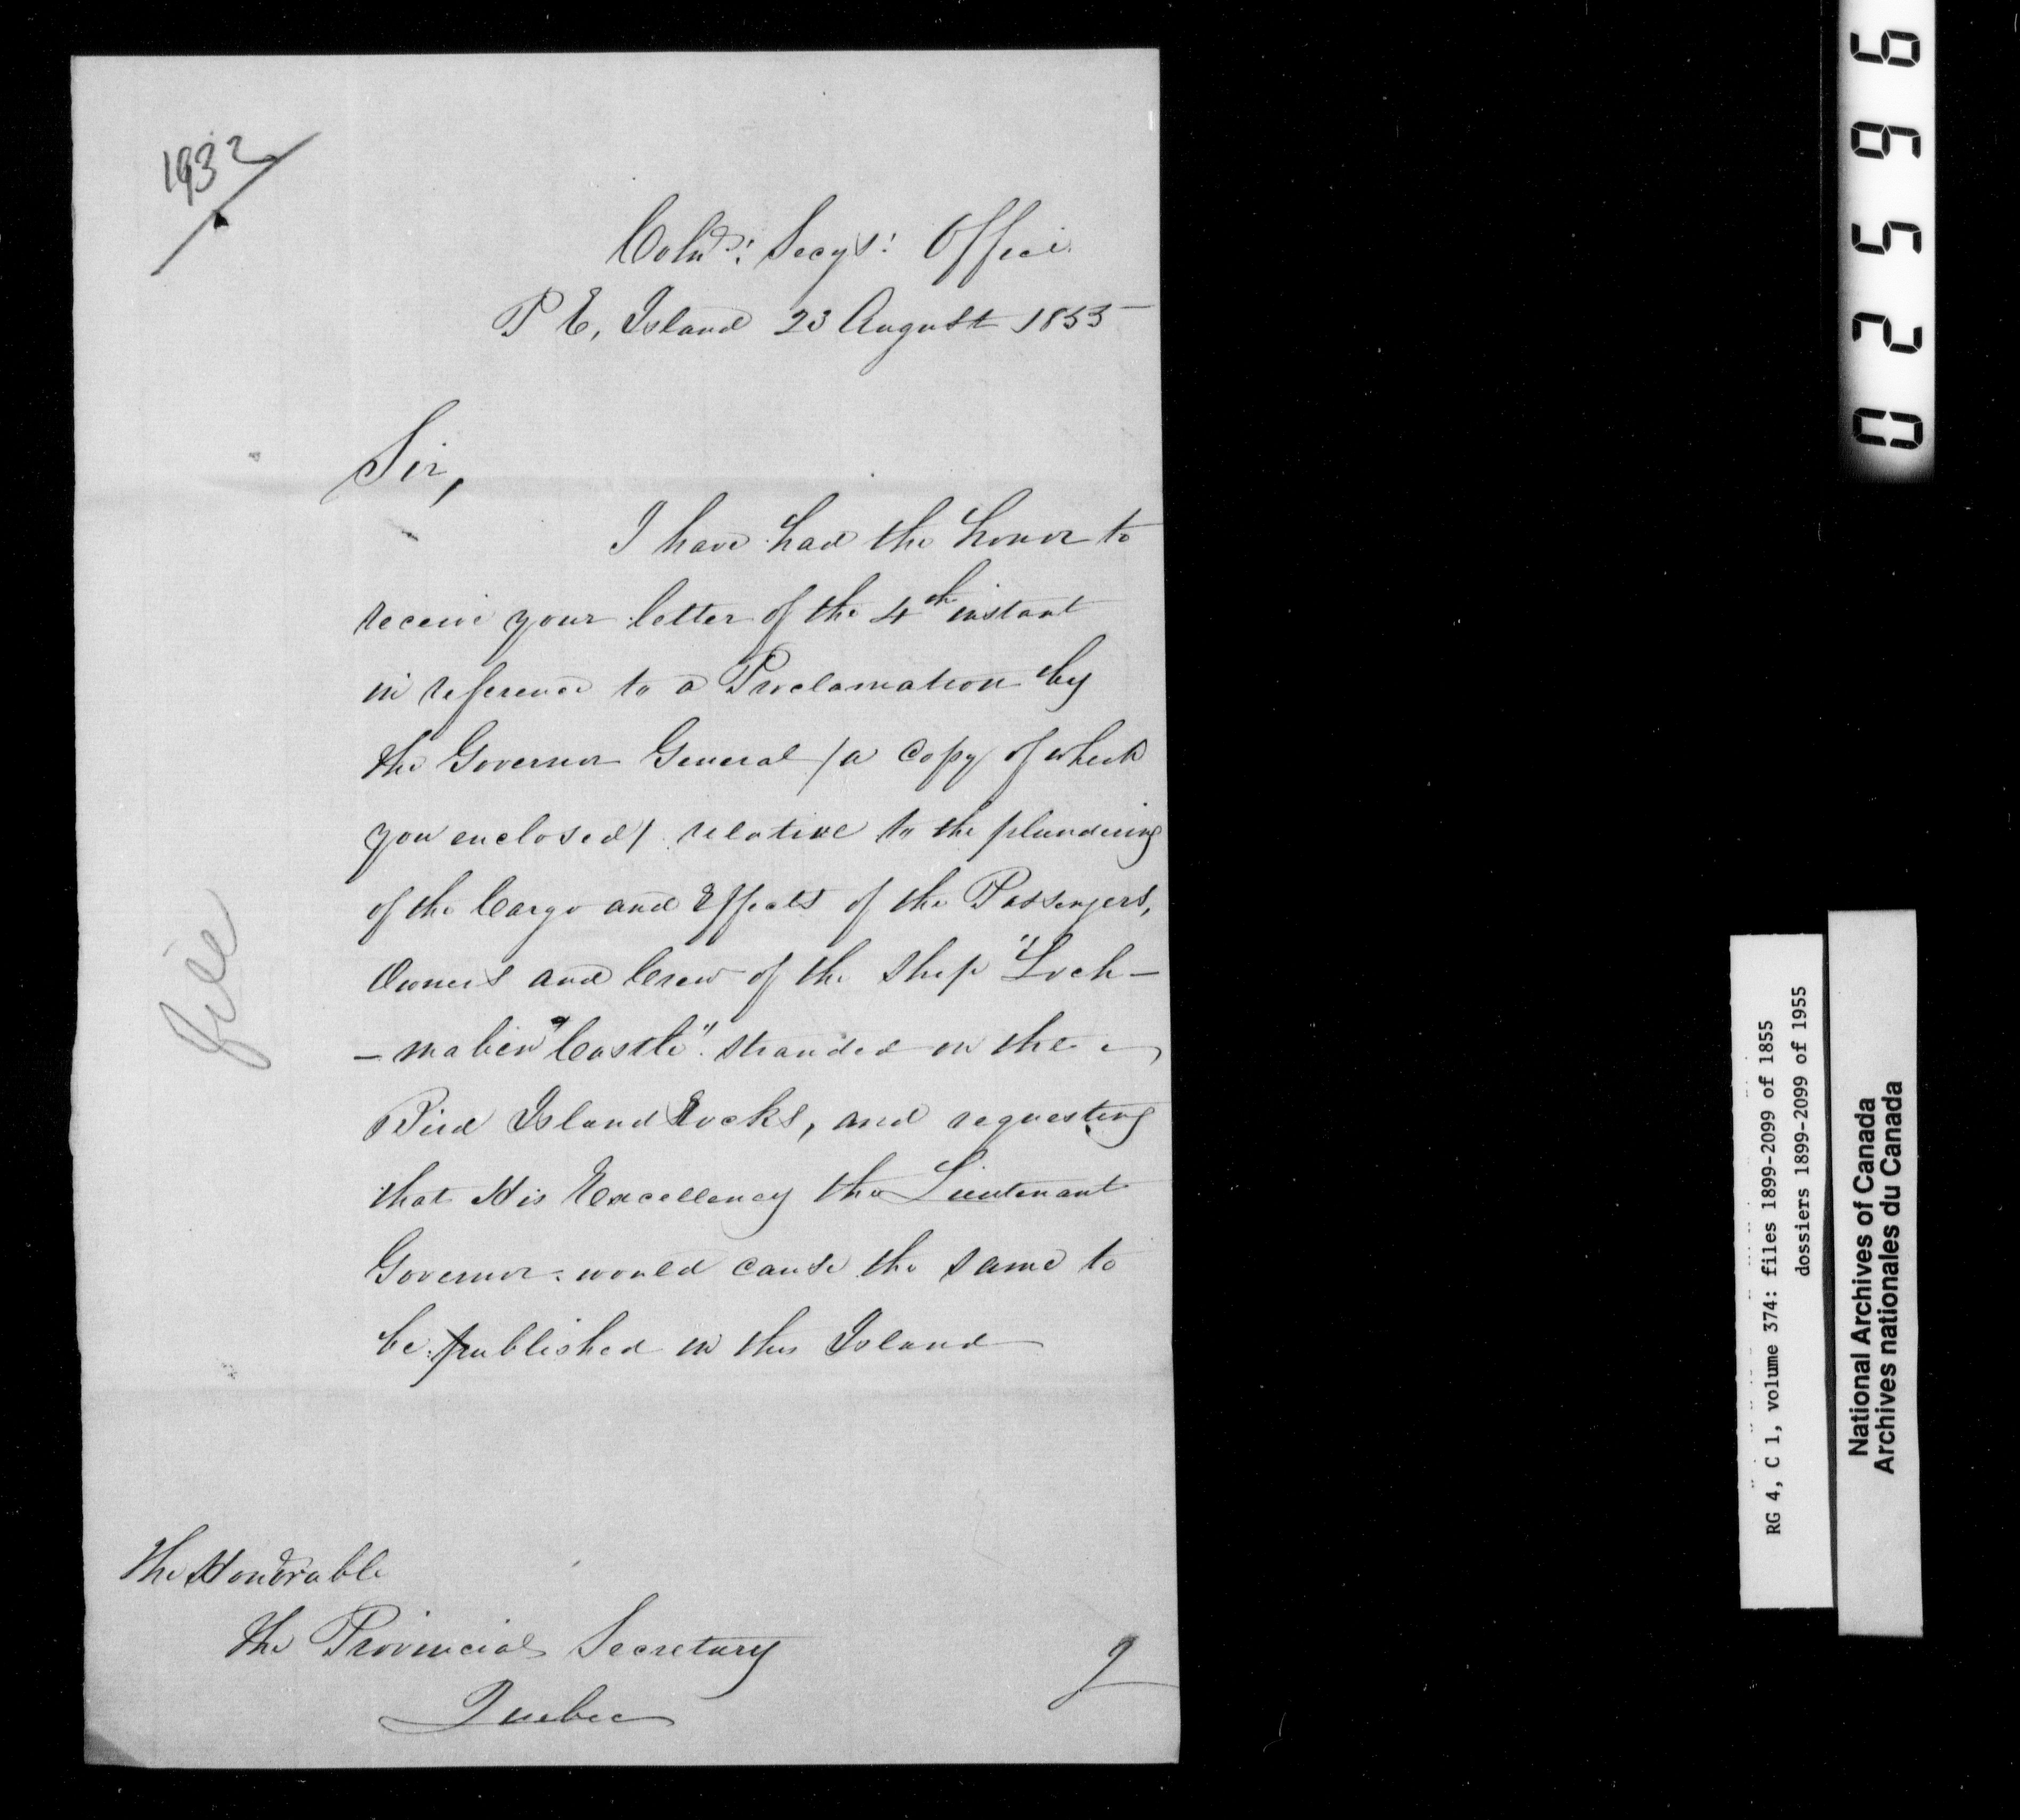 1932
Coln.: Secys: Office
P E, Island 23 August 1855
Sir,
I have had the honor to
receive your letter of the 4th instant
in reference to a Proclamation by
the Governor General /a copy of which
you enclosed/ relative to the plundering
of the Cargo and Effects of the Passengers,
Owners and Crew of the Ship "Loch-
-maben "Castle". stranded on the
Bird Island Rocks, and requesting
that His Excellency the Lieutenant
Governor would cause the same to
be published in this Island
file
The Honorable
the Provincial Secretary
Quebec
02596
RG 4, C 1, volume 374: files 1899-2099 of 1855
dossiers 1899-2099 of 1955
National Archives of Canada
Archives nationales du Canada